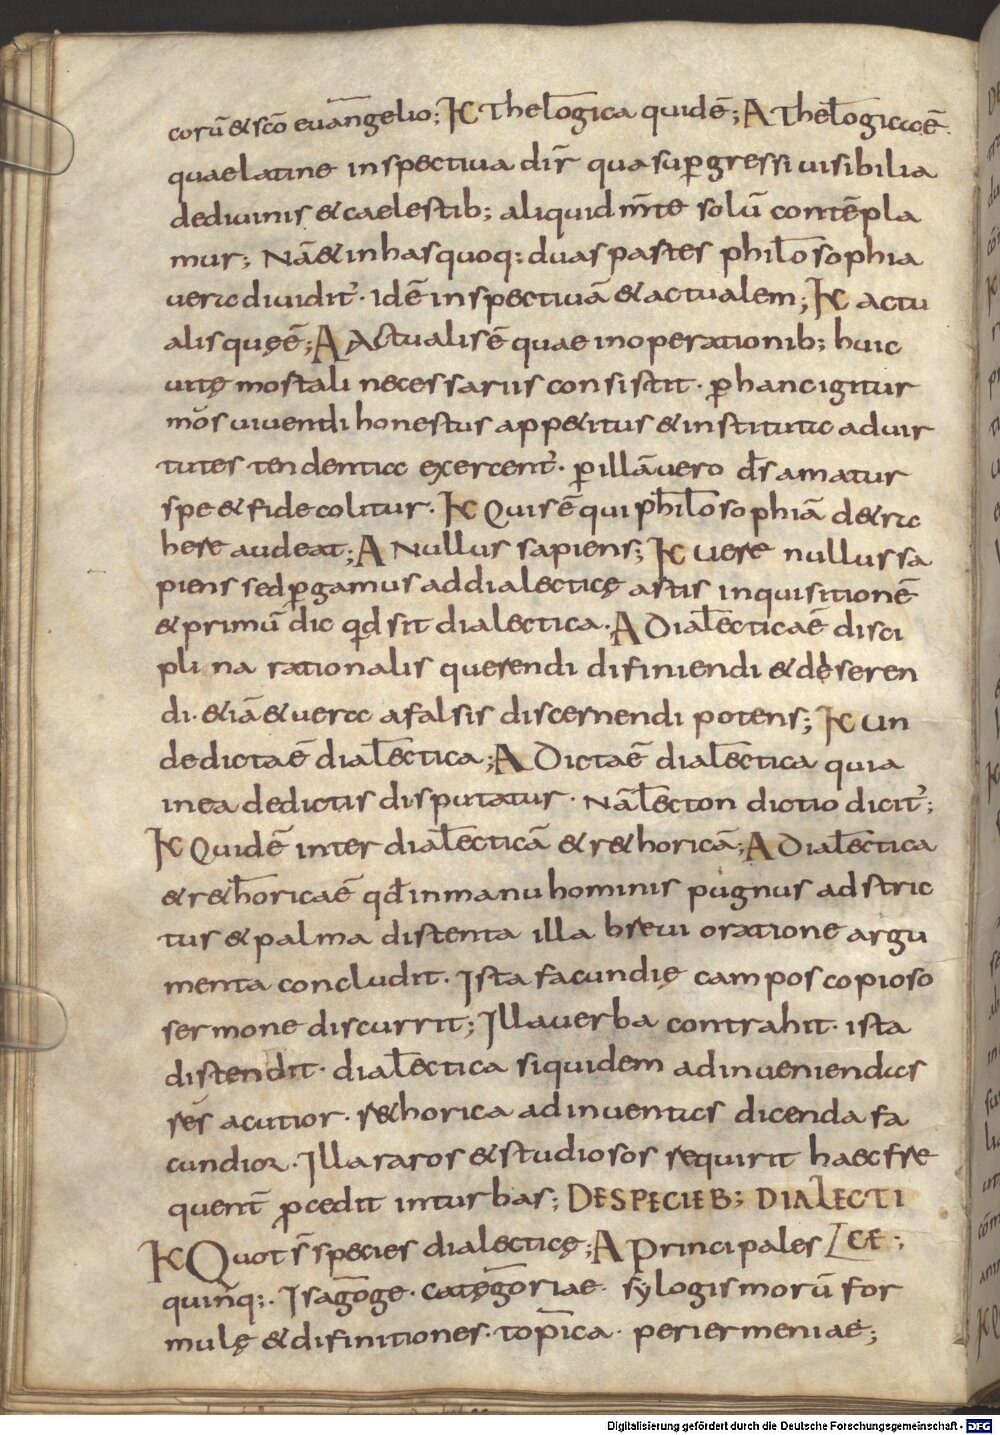 corū & sc̄o euangelio; K Thelogica quidē; A Thelogica ē.
quae latine inspectiua dir̄ qua sup̱gressi uisibilia
de diuinis & caelestib; aliquid m̄te solū contēpla
mur; Nā & in has quoq; duas partes philosophia
uera diuidit᷒· idē inspectiuā & actualem; K actu
alis quę ē; A Actualis ē quae in operationib; huic
uitę mortali necessariis consistit· p̱ hanc igitur
mos uiuendi honestus app&itus & instituta ad uir
tutes tendentia exercent᷒· p̱ illā uero d̄s amatur
spe & fide colitur· K Quis ē qui philosophiā d&rec
here audeat; A Nullus sapiens; K uere nullus sa
piens sed p̱gamus ad dialecticę artis inquisitionē
& primū dic qd sit dialectica· A Dialectica ē disci
plina rationalis querendi difiniendi & deseren
di· &iā & uera a falsis discernendi potens; K un
de dicta ē dialectica; A Dicta ē dialectica quia
in ea de dictis disputatur· Nā lecton dictio dicit᷒;
K Quid ē inter dialecticā & r&horicā; A Dialectica
& r&horica ē qd in manu hominis pugnus adstric
tus & palma distenta illa breui oratione argu
menta concludit· Ista facundię campos copioso
sermone discurrit; Illa uerba contrahit· ista
distendit· dialectica siquidem ad inueniendas
res acutior· r&horica ad inuentas dicenda fa
cundior· Illa raros & studiosos requirit haec fre
quent̄ p̱cedit in turbas; DE SPECIEB; DIALECTI
K Quot s̄ species dialecticę; A Principales [CE;
quinq;· Isagoge· categoriae· sylogismorū for
mulę & difinitiones· topica· periermeniae;
Digitalisierung gefördert durch die Deutsche Forschungsgemeinschaft - DFG